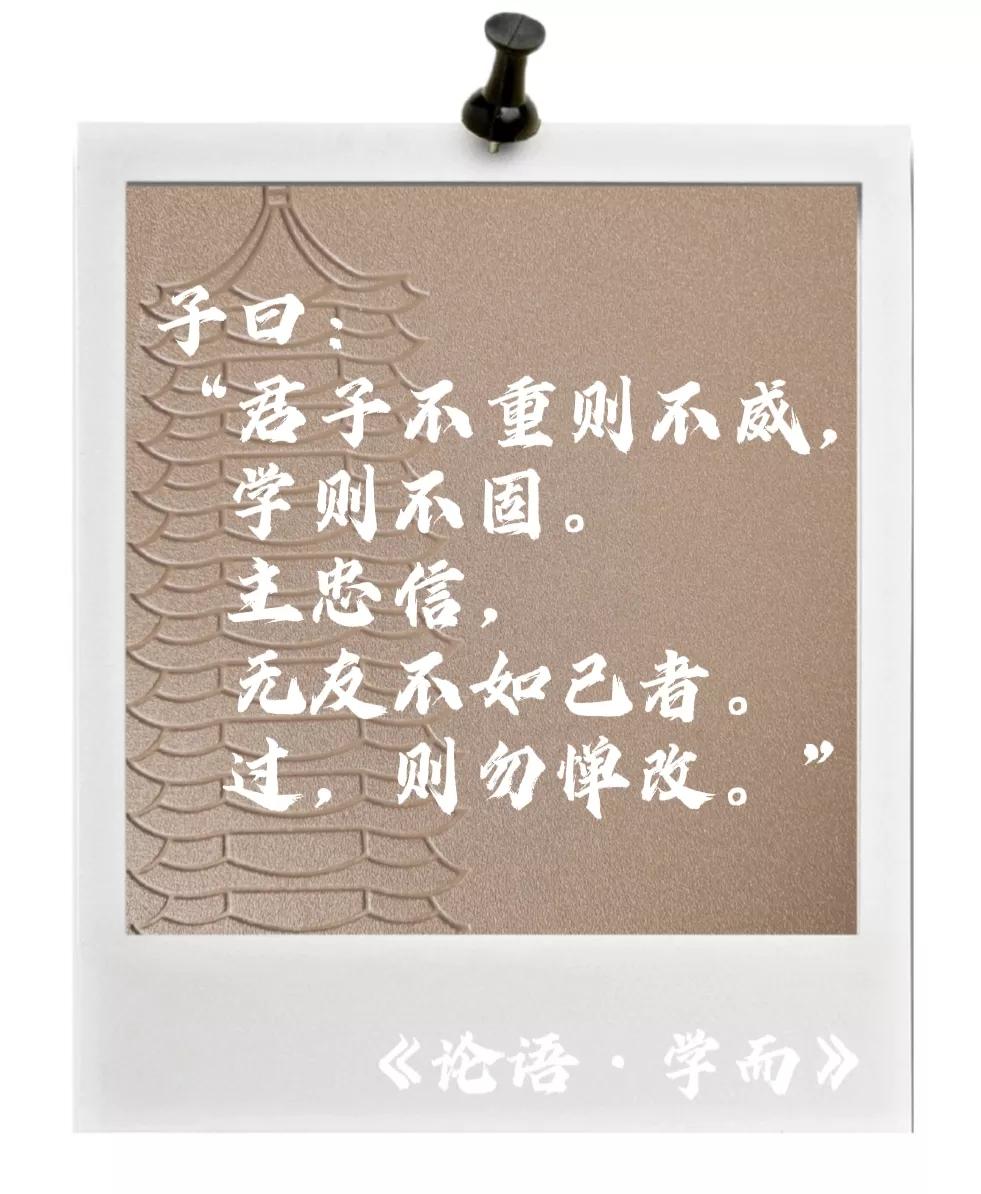 子曰：
“君子不重则不威，
学则不固。
主忠信，
无友不如己者。
过，则勿惮改。”
《论语·学而》